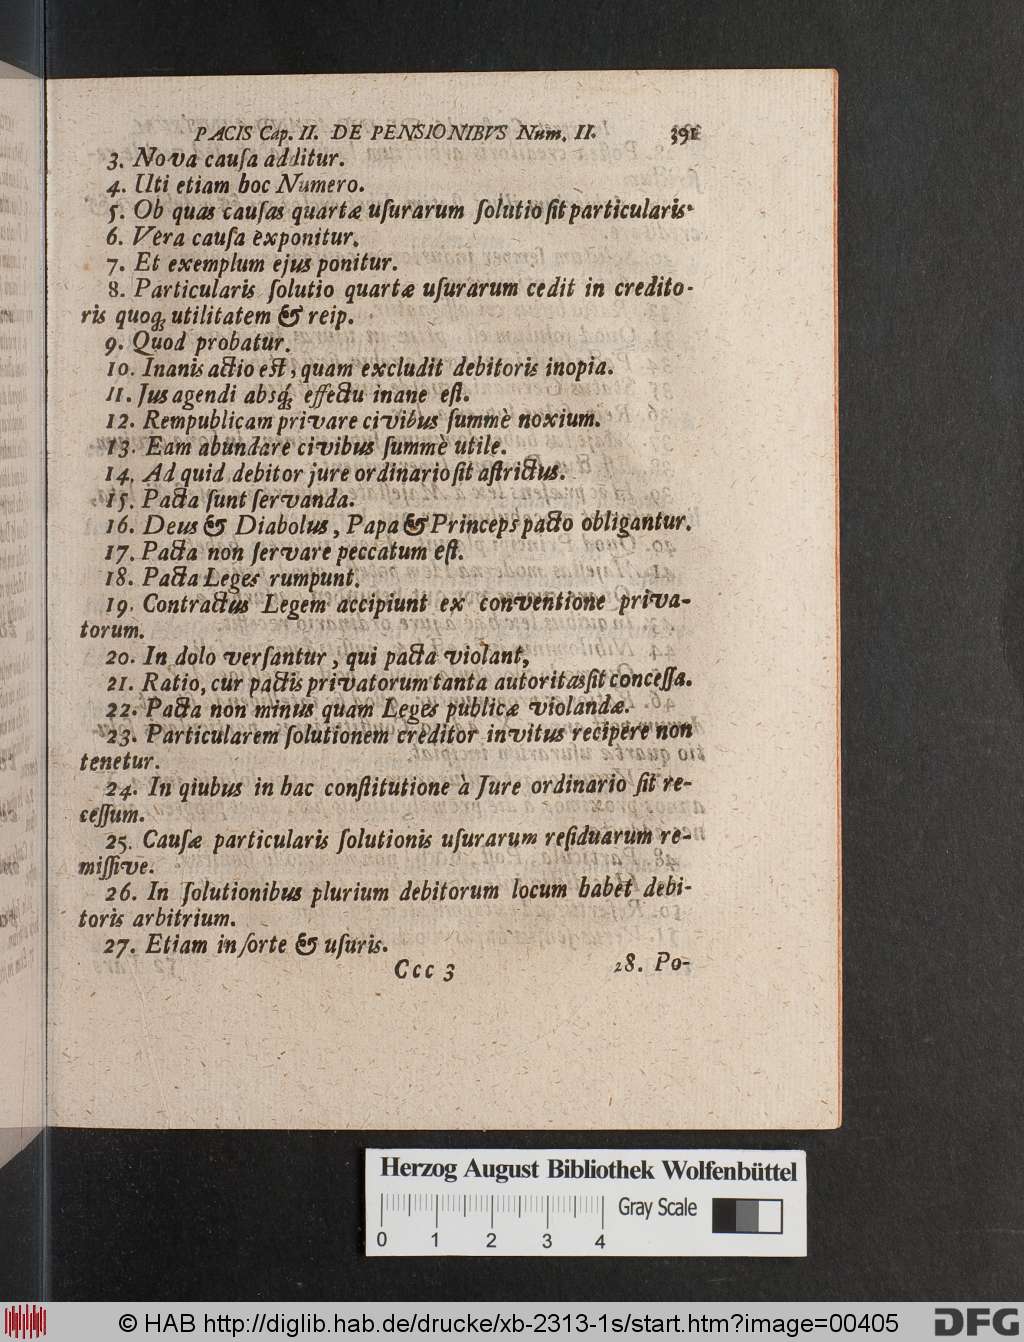 PACIS Cap. II. DE PENSIONIBVS Num. II. 391
3. Nova cauſa additur.
4. Uti etiam hoc Numero.
5. Ob quas cauſas quartæ uſurarum ſolutio ſit particularis.
6. Vera cauſa exponitur.
7. Et exemplum ejus ponitur.
8. Particularis ſolutio quartæ uſurarum cedit in credito-
ris quoq; utilitatem & reip.
9. Quod probatur.
10. Inanis actio est, quam excludit debitoris inopia.
11. Jus agendi absq; effectu inane eſt.
12. Rempublicam privare civibus ſummè noxium.
13. Eam abundare civibus ſummè utile.
14. Ad quid debitor jure ordinario ſit aſtrictus.
15. Pacta ſunt ſervanda.
16. Deus & Diabolus, Papa & Princeps pacto obligantur.
17. Pacta non ſervare peccatum eſt.
18. Pacta Leges rumpunt.
19. Contractus Legem accipiunt ex conventione priva-
torum.
20. In dolo verſantur, qui pacta violant,
21. Ratio, cur pactis privatorum tanta autoritas ſit conceſſa.
22. Pacta non minus quam Leges publicæ violandæ.
23. Particularem ſolutionem creditor invitus recipere non
tenetur.
24. In qiubus in hac conſtitutione à Jure ordinario ſit re-
ceſſum.
25. Cauſæ particularis ſolutionis uſurarum reſiduarum re-
miſſive.
26. In ſolutionibus plurium debitorum locum habet debi-
toris arbitrium.
27. Etiam in ſorte & uſuris.
Ccc 3 28. Po-
Herzog August Bibliothek Wolfenbüttel
Gray Scale
0 1 2 3 4
© HAB http://diglib.hab.de/drucke/xb-2313-1s/start.htm?image=00405
DFG